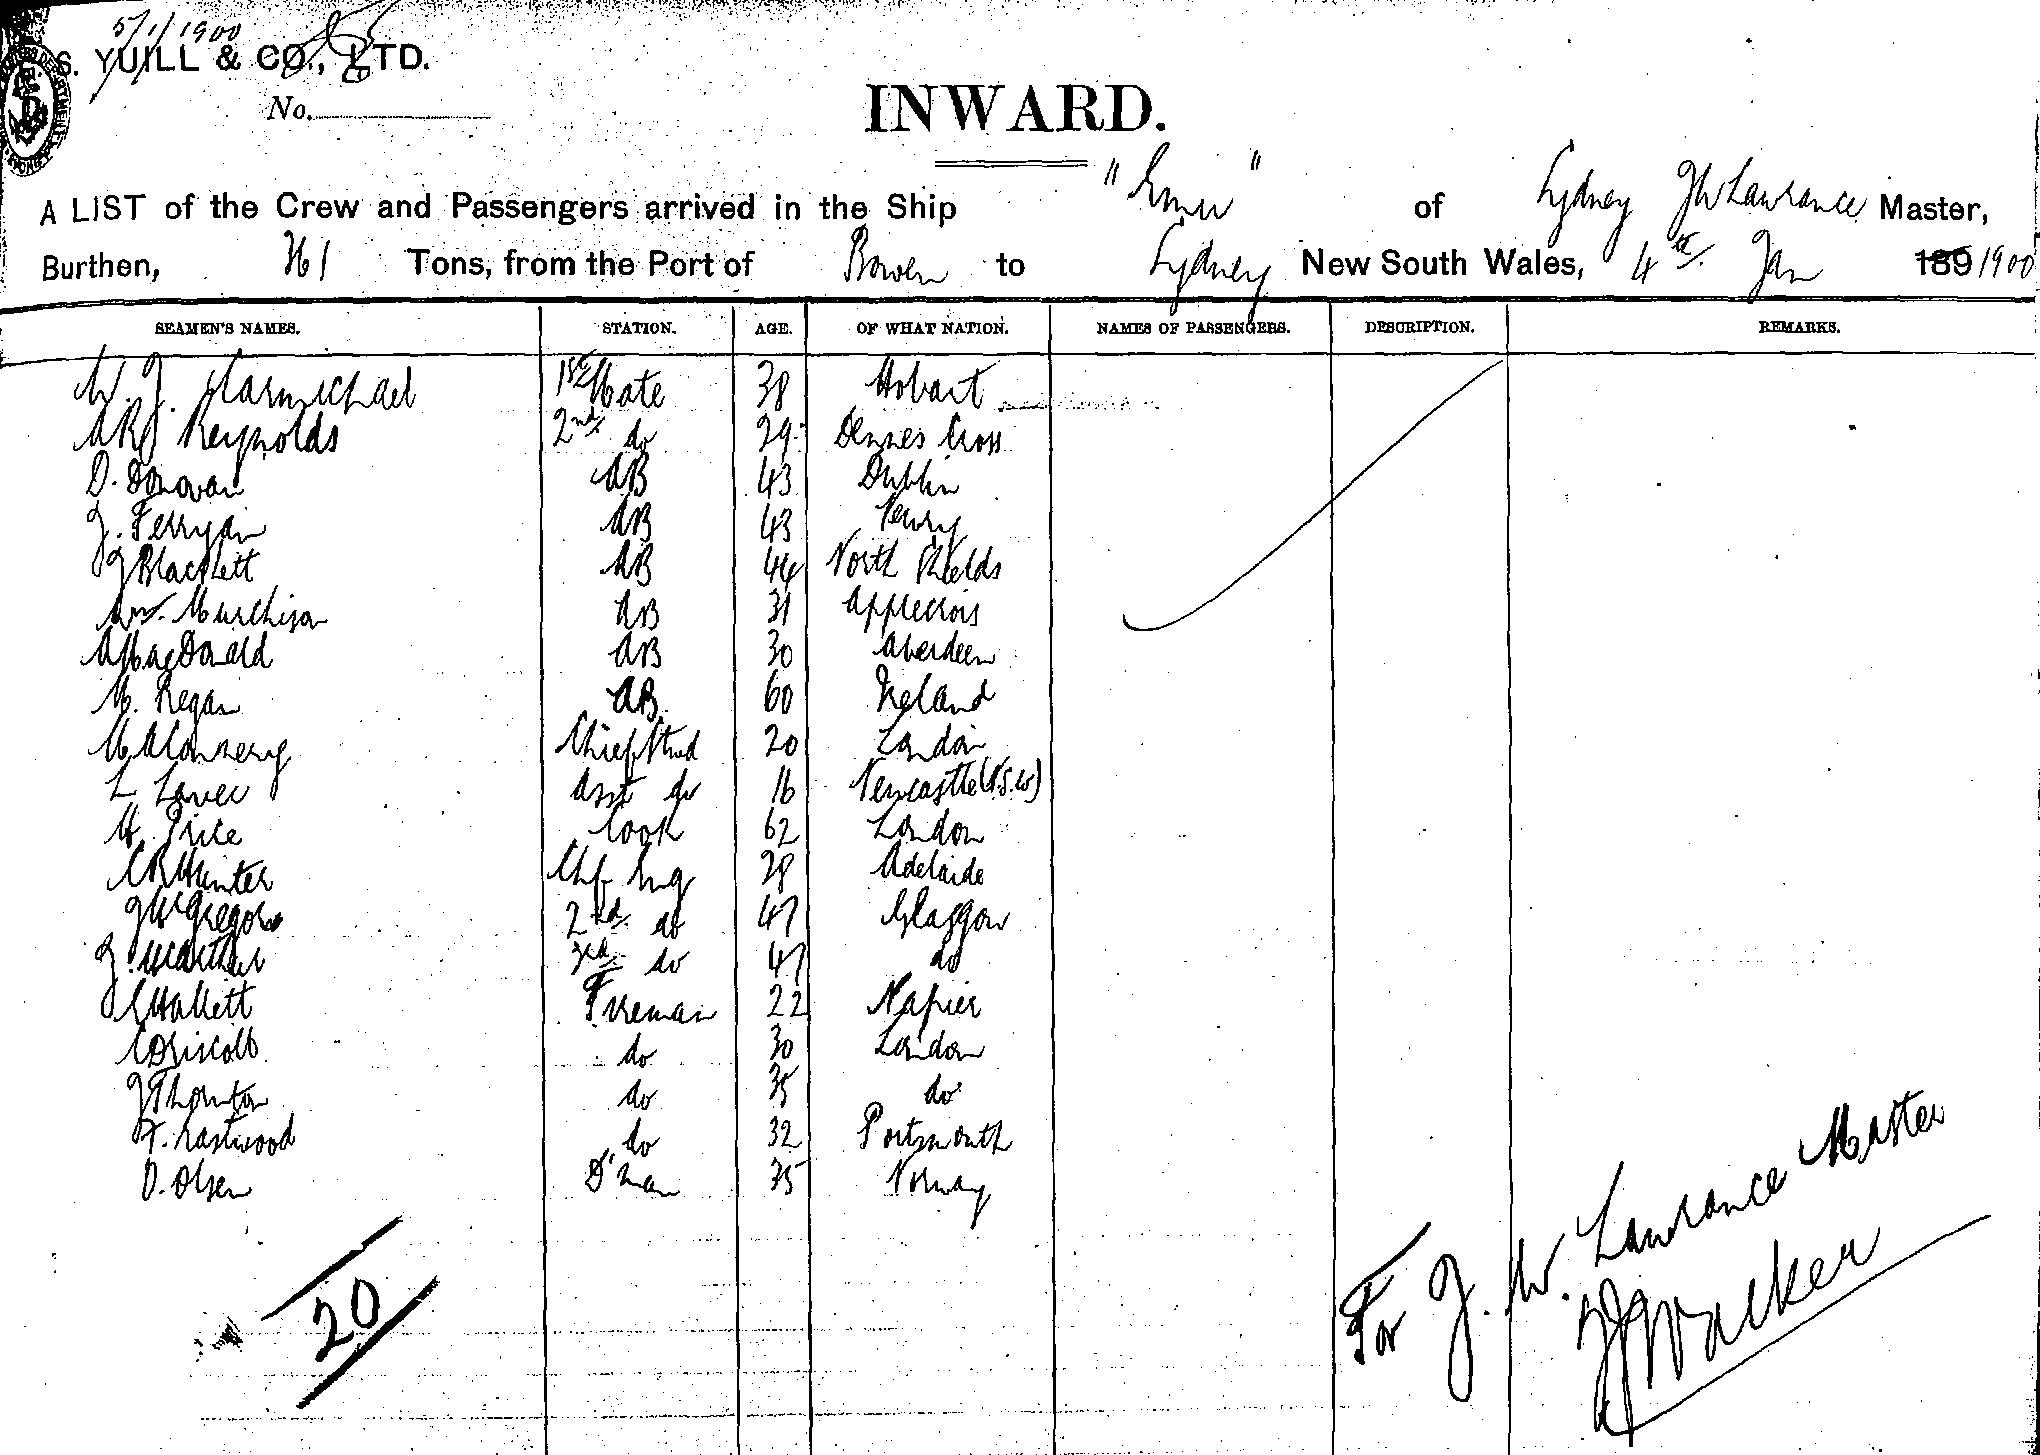 5/1/1900
S. YUILL & CO., LTD.
No.
INWARD.
A LIST of the Crew and Passengers arrived in the Ship "Emu" of Sydney J W Lawrance Master,
Burthen, Tons, from the Port of Bowen to Sydney New South Wales, 4th Jan 189 1900
SEAMEN'S NAMES. STATION. AGE. OF WHAT NATION. NAMES OF PASSENGERS. DESCRIPTION. REMARKS.
W. J. Carmichael 1st Mate 38 Hobart
Reynolds 2nd do 29 Cross
D. Donovan AB 43 Dublin
J. Ferryan AB 43 Newry
J Blackett AB 44 North Shields
Wm. Murchison AB 31 Applecross
A MacDonald AB 30 Aberdeen
M. Regan AB 60 Ireland
Chief Stwd 20 London
L Laver Asst do 16 Newcastle (N.S.W)
H. Price Cook 62 London
C R Hunter Chf Eng 28 Adelaide
J McGregor 2nd do 47 Glasgow
J. McArthur 3rd do 47 do
G Hallett Fireman 22 Napier
C Driscoll do 30 London
J Thornton do 35 do
F. Eastwood do 32 Portsmouth
O. Olsen D'man 35 Norway
20
For J. W. Lawrance Master
Walker